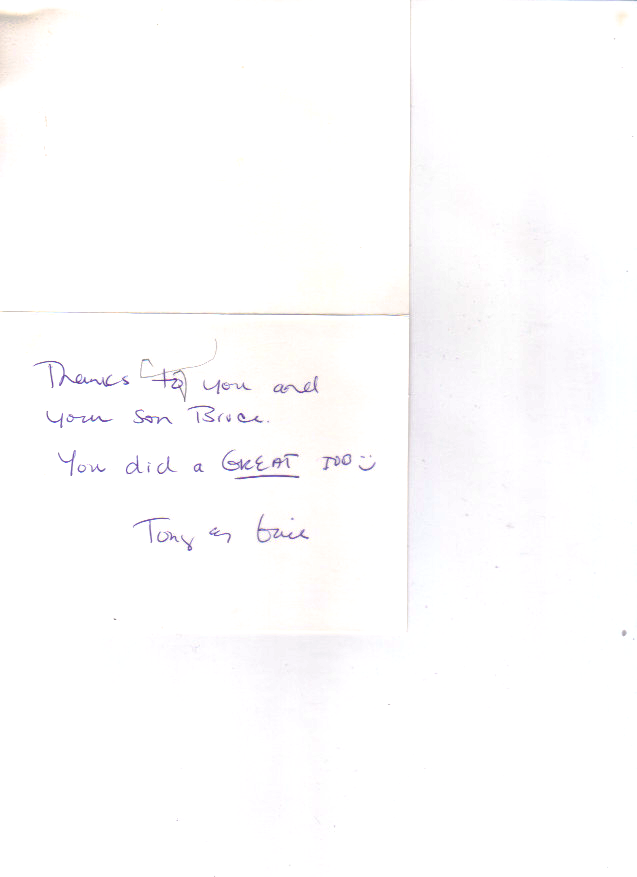 Thanks to you and
your son Bruce.
You did a GREAT JOB
Tony & Gail